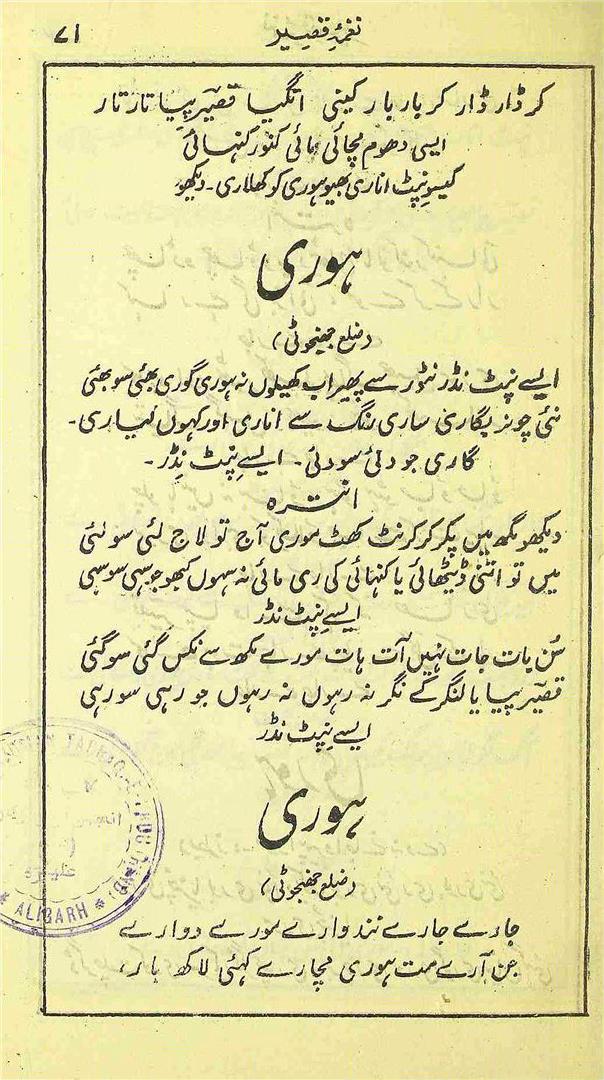 نغمۂ قصیر
۷۱
کر ڈار ڈار کر بار بار کینی انگیا قصیر پیا تار تار
ایسی دھوم مچائی مائی کنور کنہائی
کیسو نپٹ اناری بھیو ہوری کو کھلاری۔ دیکھو
ہوری
(ضلع جھنجوٹی)
ایسے نپٹ نڈر نٹور سے پھیر اب کھیلوں نہ ہوری گوری بھئی سو بھئی
نئی چونر بگاری ساری رنگ سے اناری اور کہوں لہا ری۔
گاری جو دئی سو دئی۔ ایسے نپٹ نڈر۔
انترہ
دیکھو مگھ میں پکر کر کرنٹ کھٹ موری آج تو لاج لئی سو لئی
میں تو اتنی ڈیٹھائی یا کنہائی کی ری مائی نہ سہوں کبھو جو سہی سو سہی
ایسے نپٹ نڈر
سُن بات جات نہیں آت ہات مورے مکھ سے نکس گئی سو گئی
قصیر پیا یا لنگر کے نگر نہ رہوں نہ رہوں جو رہی سو رہی
ایسے نپٹ نڈر
ہوری
(ضلع جھنجوٹی)
جارے جارے نندوارے مورے دوارے
جن آرے مت ہوری مچارے کہئی لاکھ بار،
* ALIGARH *